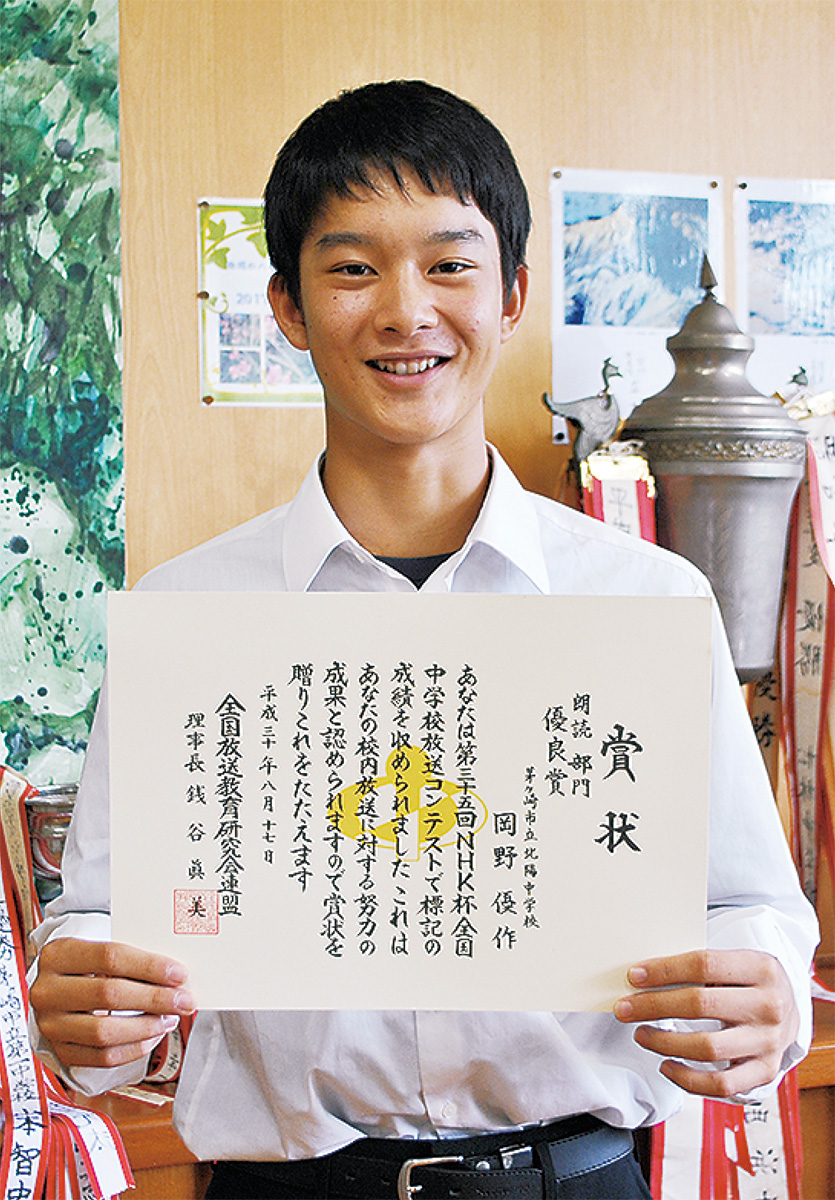 賞状
朗読部門
優良賞
茅ヶ崎市立北陽中学校
岡野優作
あなたは第三十五回NHK杯全国
中学校放送コンテストで標記の
成績を収められましたこれは
あなたの校内放送に対する努力の
成果と認められますので賞状を
贈りこれをたたえます
平成三十年八月十七日
全国放送教育研究会連盟
理事長 銭谷眞美
優勝